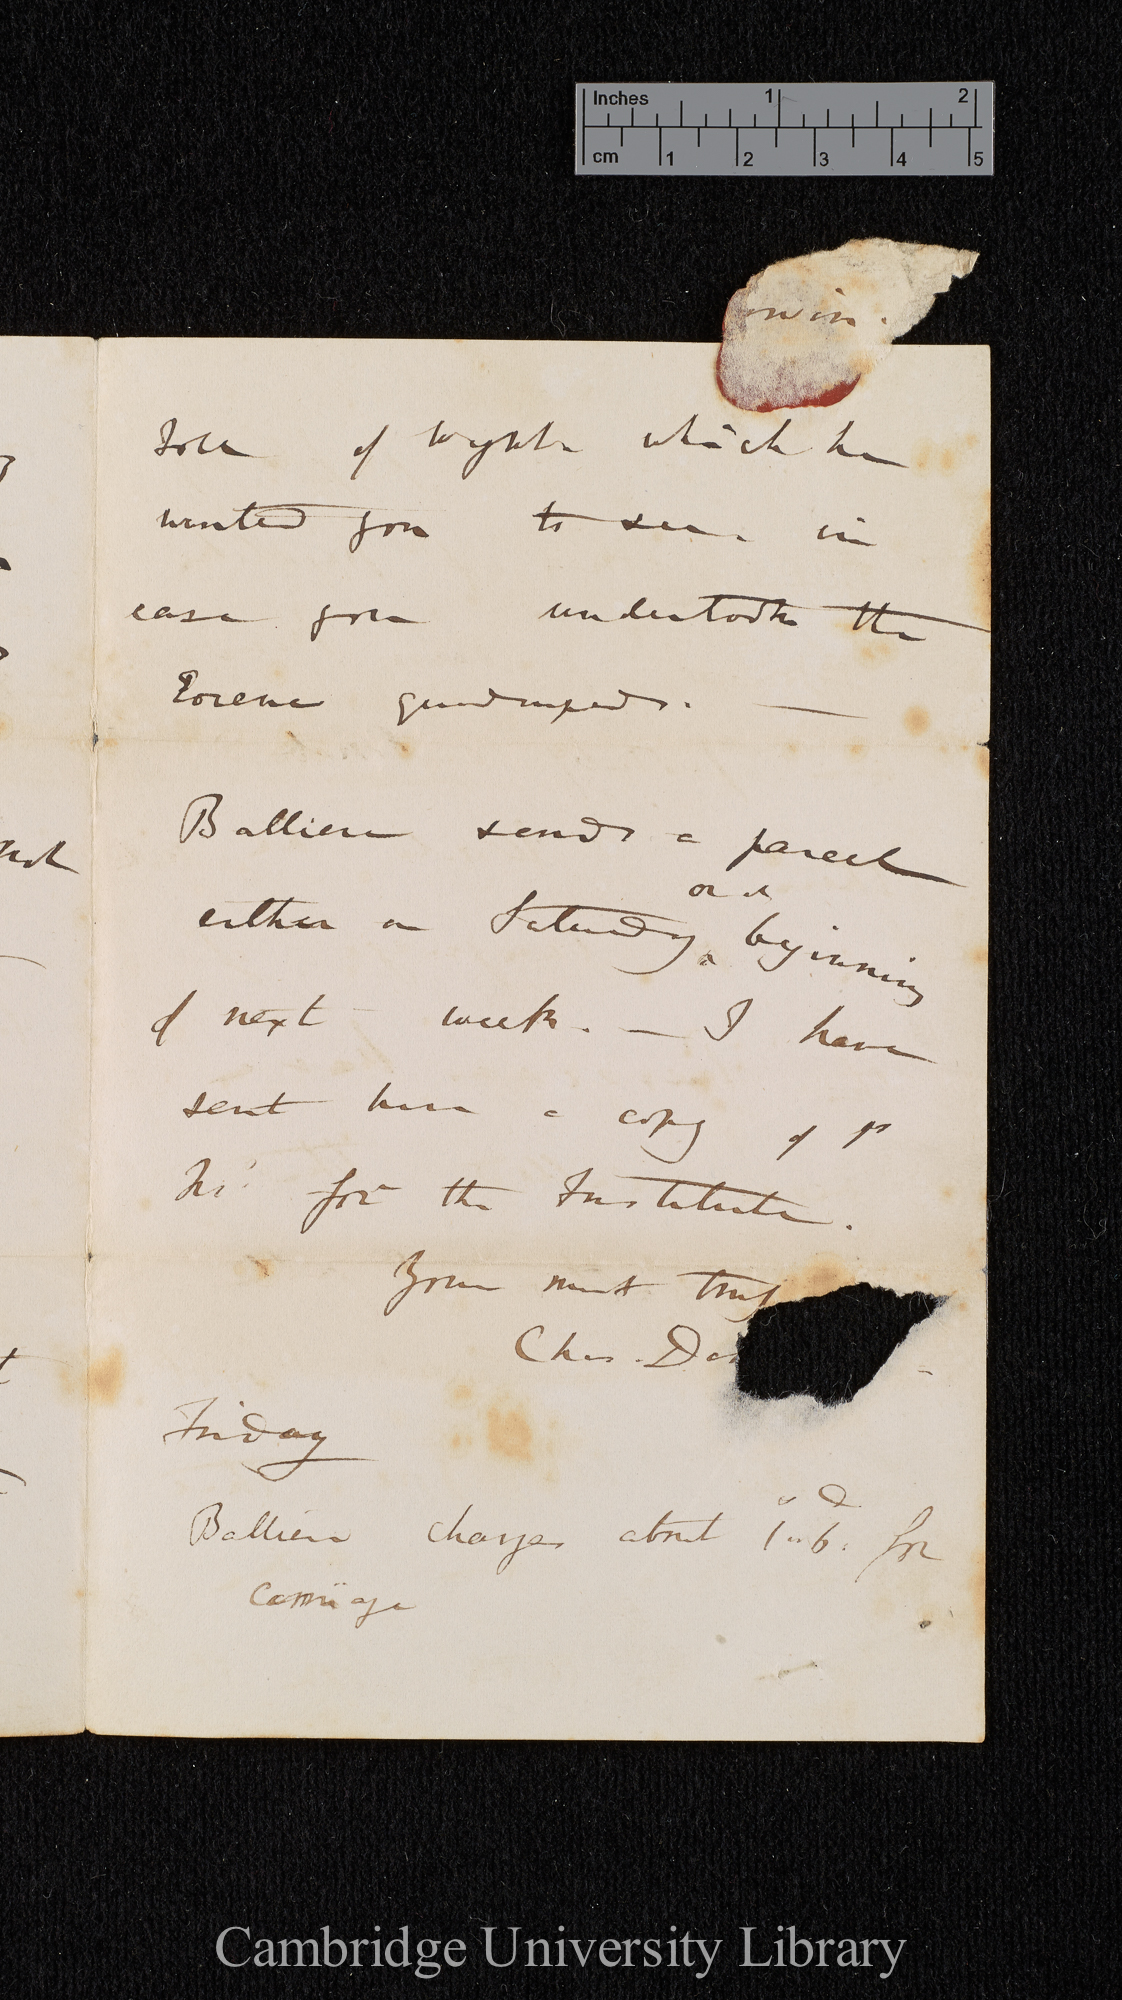 Inches 1 2
cm 1 2 3 4 5
rwin.
of Wynne which he
wanted you to see, in
case you undertook the
Eocene quadrupeds. —
Balliere sends a parcel
either on Saturday or at beginning
of next week. — I have
sent him a copy of
No for the Institute.
Yours most truly
Chas. Dar
Friday
Balliere charges about 1s..6d. for
carriage
not
Cambridge University Library